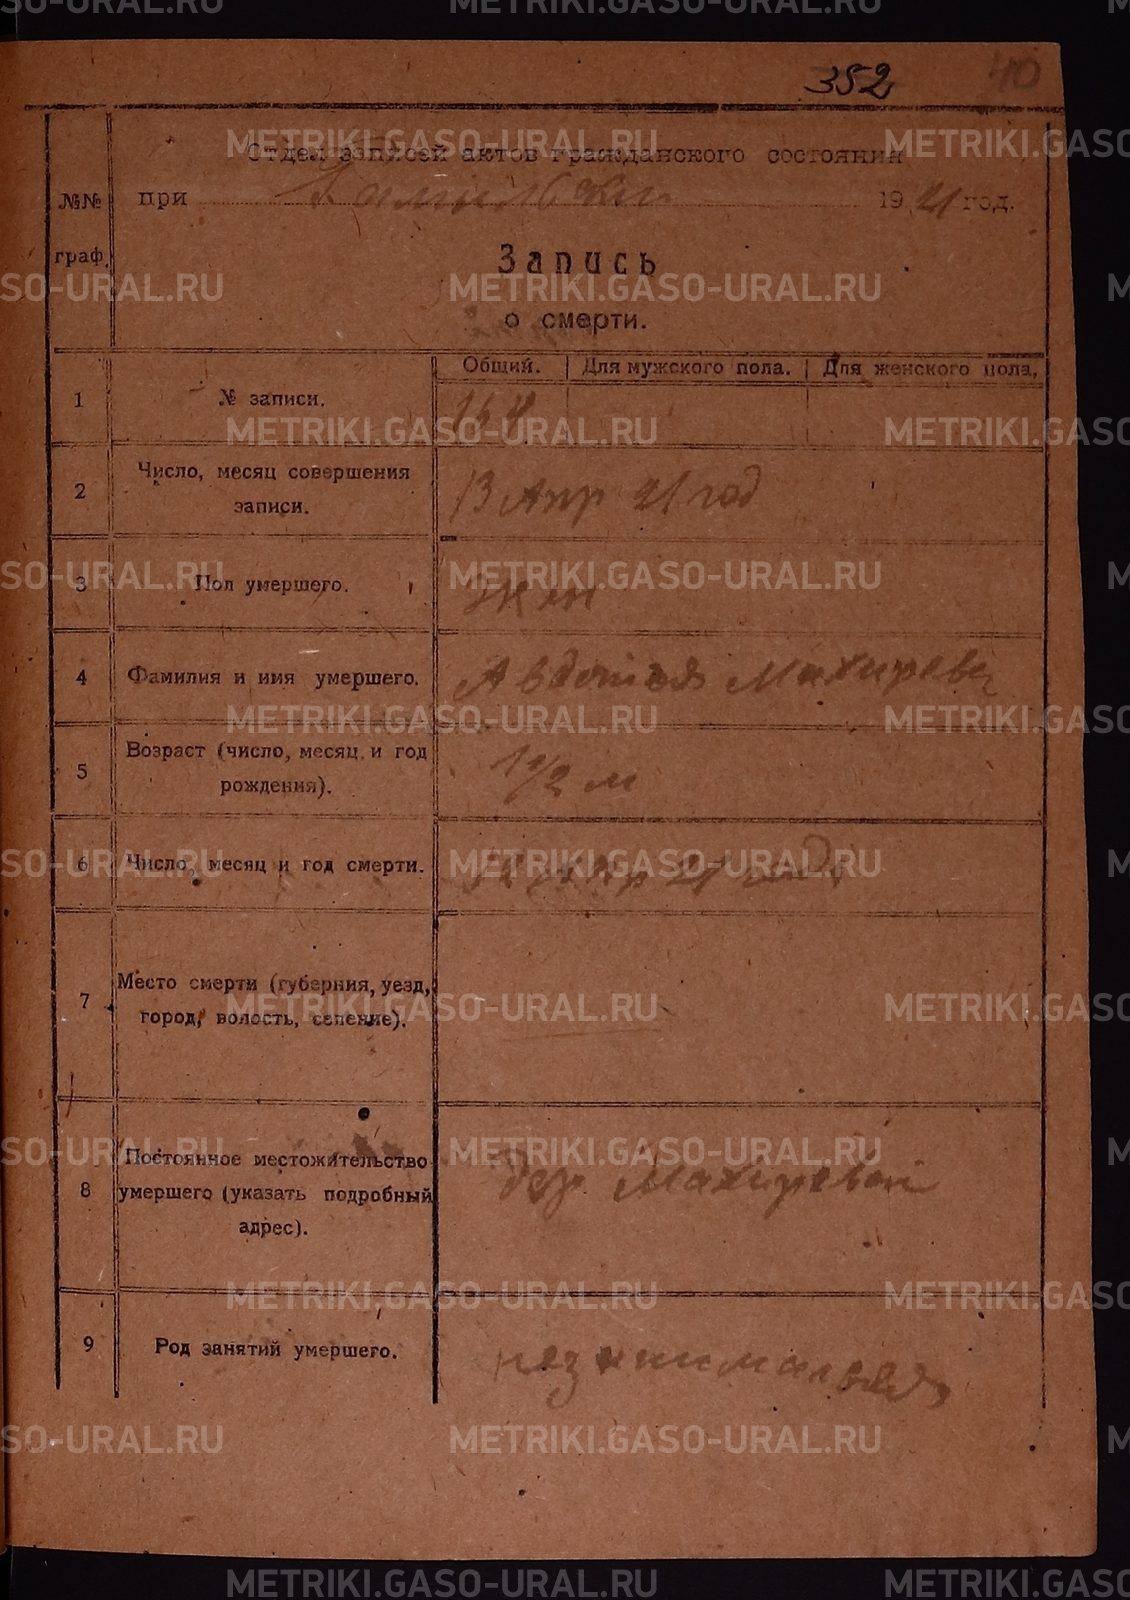 METRIKI.GASO-URAL.RU
352
40
Отдел записей актов гражданского состояния
№№ граф.
при 1921 год.
Запись
о смерти.
Общий. Для мужского пола. Для женского пола.
1 № записи.
2 Число, месяц совершения
записи.
13 Апр 21 год
3 Пол умершего.
жен
4 Фамилия и имя умершего.
Авдотья Махнрева
5 Возраст (число, месяц и год
рождения).
1 1/2 м
6 Число, месяц и год смерти.
12 Апр 21 года
7 Место смерти (губерния, уезд,
город, волость, селение).
8 Постоянное местожительство
умершего (указать подробный
адрес).
дер.
9 Род занятий умершего.
незанималься